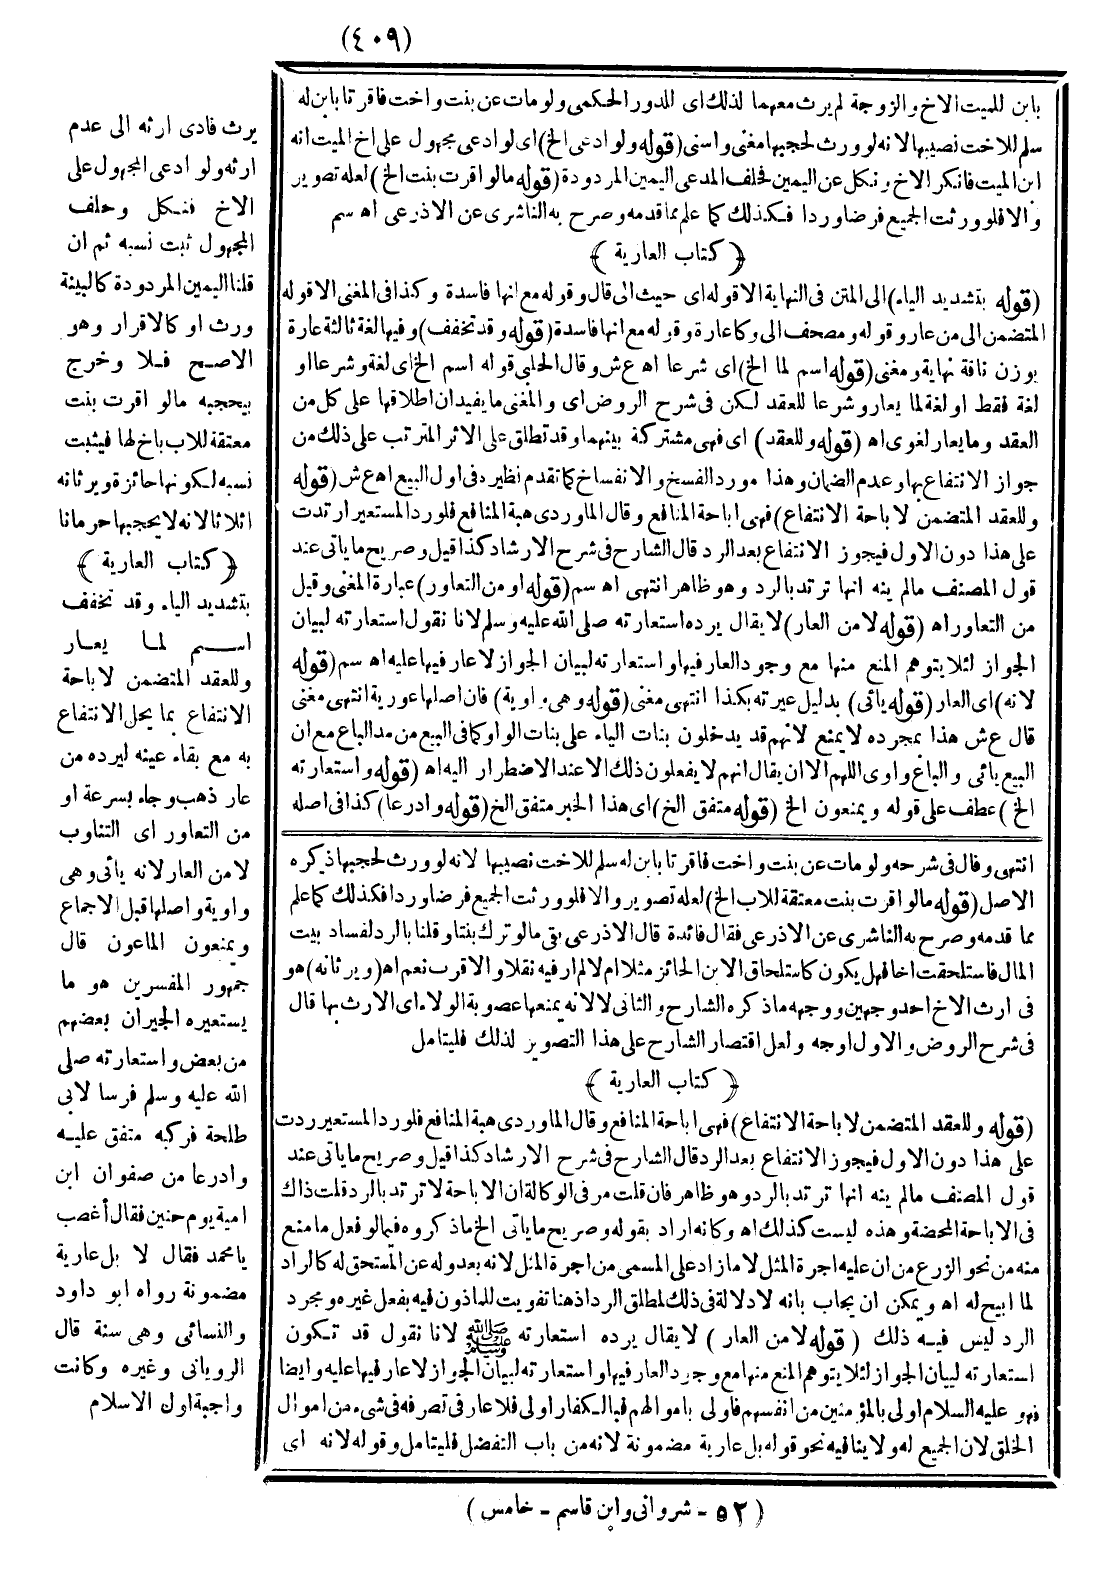 (٤٠٩)
بابن للميت الاخ والزوجة لم يرث معهما لذلك اى للدور الحكمى ولو مات عن بنت واخت فاقرتا بابن له
سلم للاخت نصيبها لانه لو ورث لحجبها مغنى واسنى (قوله ولو ادعى الخ) اى لو ادعى مجهول على اخ الميت انه
ابن الميت فانكر الاخ ونكل عن اليمين فحلف المدعى اليمين المردودة (قوله مالو اقرت بنت الخ) لعله تصوير
والا فلو ورثت الجميع فرضا وردا فكذلك كما علم مما قدمه وصرح به الناشرى عن الاذرعى اه سم
﴿ كتاب العارية ﴾
(قوله بتشديد الياء) الى المتن فى النهاية الا قوله اى حيث الى قال وقوله مع انها فاسدة وكذا فى المغنى الا قوله
المتضمن الى من عار وقوله ومصحف الى وكاعارة وقوله مع انها فاسدة (قوله وقد تخفف) وفيها لغة ثالثة عارة
بوزن ناقة نهاية ومغنى (قوله اسم لما الخ) اى شرعا اه ع ش وقال الحلبى قوله اسم الخ اى لغة وشرعا او
لغة فقط او لغة لما يعار وشرعا للعقد لكن فى شرح الروض اى والمغنى ما يفيدان اطلاقها على كل من
العقد وما يعار لغوى اه (قوله وللعقد) اى فهى مشتركة بينهما وقد تطلق على الاثر المترتب على ذلك من
جواز الانتفاع بها وعدم الضمان وهذا مورد الفسخ والانفساخ كما تقدم نظيره فى اول البيع اه ع ش (قوله
وللعقد المتضمن لاباحة الانتفاع) فهى اباحة المنافع وقال الماوردى هبة المنافع فلو رد المستعير ارتدت
على هذا دون الاول فيجوز الانتفاع بعد الرد قال الشارح فى شرح الارشاد كذا قيل وصريح ما ياتى عند
قول المصنف مالم ينه انها ترتد بالرد وهو ظاهر انتهى اه سم (قوله او من التعاور) عبارة المغنى وقيل
من التعاور اه (قوله لا من العار) لا يقال يرده استعارته صلى الله عليه وسلم لانا نقول استعارته لبيان
الجواز لئلا يتوهم المنع منها مع وجود العار فيها واستعارته لبيان الجواز لا عار فيها عليه اه سم (قوله
لانه) اى العار (قوله يائى) بدليل عيرته بكذا انتهى مغنى (قوله وهى واوية) فان اصلها عورية انتهى مغنى
قال ع ش هذا بمجرده لا يمنع لانهم قد يدخلون بنات الياء على بنات الواو كما فى البيع من مد الباع مع ان
البيع يائى والباع واوى اللهم الا ان يقال انهم لا يفعلون ذلك الا عند الاضطرار اليه اه (قوله واستعارته
الخ) عطف على قوله ويمنعون الخ (قوله متفق الخ) اى هذا الخبر متفق الخ (قوله وادرعا) كذا فى اصله
انتهى وقال فى شرحه ولو مات عن بنت واخت فاقرتا بابن له سلم للاخت نصيبها لانه لو ورث لحجبها ذكره
الاصل (قوله مالو اقرت بنت معتقة للاب الخ) لعله تصوير والا فلو ورثت الجميع فرضا وردا فكذلك كما علم
مما قدمه وصرح به الناشرى عن الاذرعى فقال فائدة قال الاذرعى بقى مالو ترك بنتا وقلنا بالرد لفساد بيت
المال فاستلحقت اخا فهل يكون كاستلحاق الابن الحائز مثلا ام لا لم ار فيه نقلا والاقرب نعم اه (ويرثانه) هو
فى ارث الاخ احد وجهين ووجهه ماذكره الشارح والثانى لا لانه يمنعها عصوبة الولاء اى الارث بها قال
فى شرح الروض والاول اوجه ولعل اقتصار الشارح على هذا التصوير لذلك فليتامل
﴿ كتاب العارية ﴾
(قوله وللعقد المتضمن لاباحة الانتفاع) فهى اباحة المنافع وقال الماوردى هبة المنافع فلو رد المستعير ردت
على هذا دون الاول فيجوز الانتفاع بعد الرد قال الشارح فى شرح الارشاد كذا قيل وصريح ما ياتى عند
قول المصنف مالم ينه انها ترتد بالرد وهو ظاهر فان قلت مر فى الوكالة ان الاباحة لا ترتد بالرد قلت ذاك
فى الاباحة المحضة وهذه ليست كذلك اه وكانه اراد بقوله وصريح ما ياتى الخ ماذكروه فيما لو فعل ما منع
منه من نحو الزرع من ان عليه اجرة المثل لا ما زاد على المسمى من اجرة المثل لانه بعدوله عن المستحق له كالراد
لما ابيح له اه ويمكن ان يجاب بانه لا دلالة فى ذلك لمطلق الرد اذ هنا تفويت للماذون فيه بفعل غيره ومجرد
الرد ليس فيه ذلك (قوله لا من العار) لا يقال يرده استعارته ﷺ لانا نقول قد تكون
استعارته لبيان الجواز لئلا يتوهم المنع منها مع وجود العار فيها واستعارته لبيان الجواز لا عار فيها عليه وايضا
فهو عليه السلام اولى بالمؤمنين من انفسهم فاولى باموالهم فبالكفار اولى فلا عار فى تصرفه فى شىء من اموال
الخلق لان الجميع له ولا ينافيه نحو قوله بل عارية مضمونة لانه من باب التفضل فليتامل وقوله لانه اى
يرث فادى ارثه الى عدم
ارثه ولو ادعى المجهول على
الاخ فنكل وحلف
المجهول ثبت نسبه ثم ان
قلنا اليمين المردودة كالبينة
ورث او كالاقرار وهو
الاصح فلا وخرج
بيحجبه مالو اقرت بنت
معتقة للاب باخ لها فيثبت
نسبه لكونها حائزة ويرثانه
اثلاثا لانه لا يحجبها حرمانا
﴿ كتاب العارية ﴾
بتشديد الياء وقد تخفف
اسم لما يعار
وللعقد المتضمن لاباحة
الانتفاع بما يحل الانتفاع
به مع بقاء عينه ليرده من
عار ذهب وجاء بسرعة او
من التعاور اى التناوب
لا من العار لانه يائى وهى
واوية واصلها قبل الاجماع
ويمنعون الماعون قال
جمهور المفسرين هو ما
يستعيره الجيران بعضهم
من بعض واستعارته صلى
الله عليه وسلم فرسا لابى
طلحة فركبه متفق عليه
وادرعا من صفوان ابن
امية يوم حنين فقال أغصب
يا محمد فقال لا بل عارية
مضمونة رواه ابو داود
والنسائى وهى سنة قال
الرويانى وغيره وكانت
واجبة اول الاسلام
( ٥٢ - شروانى وابن قاسم - خامس )